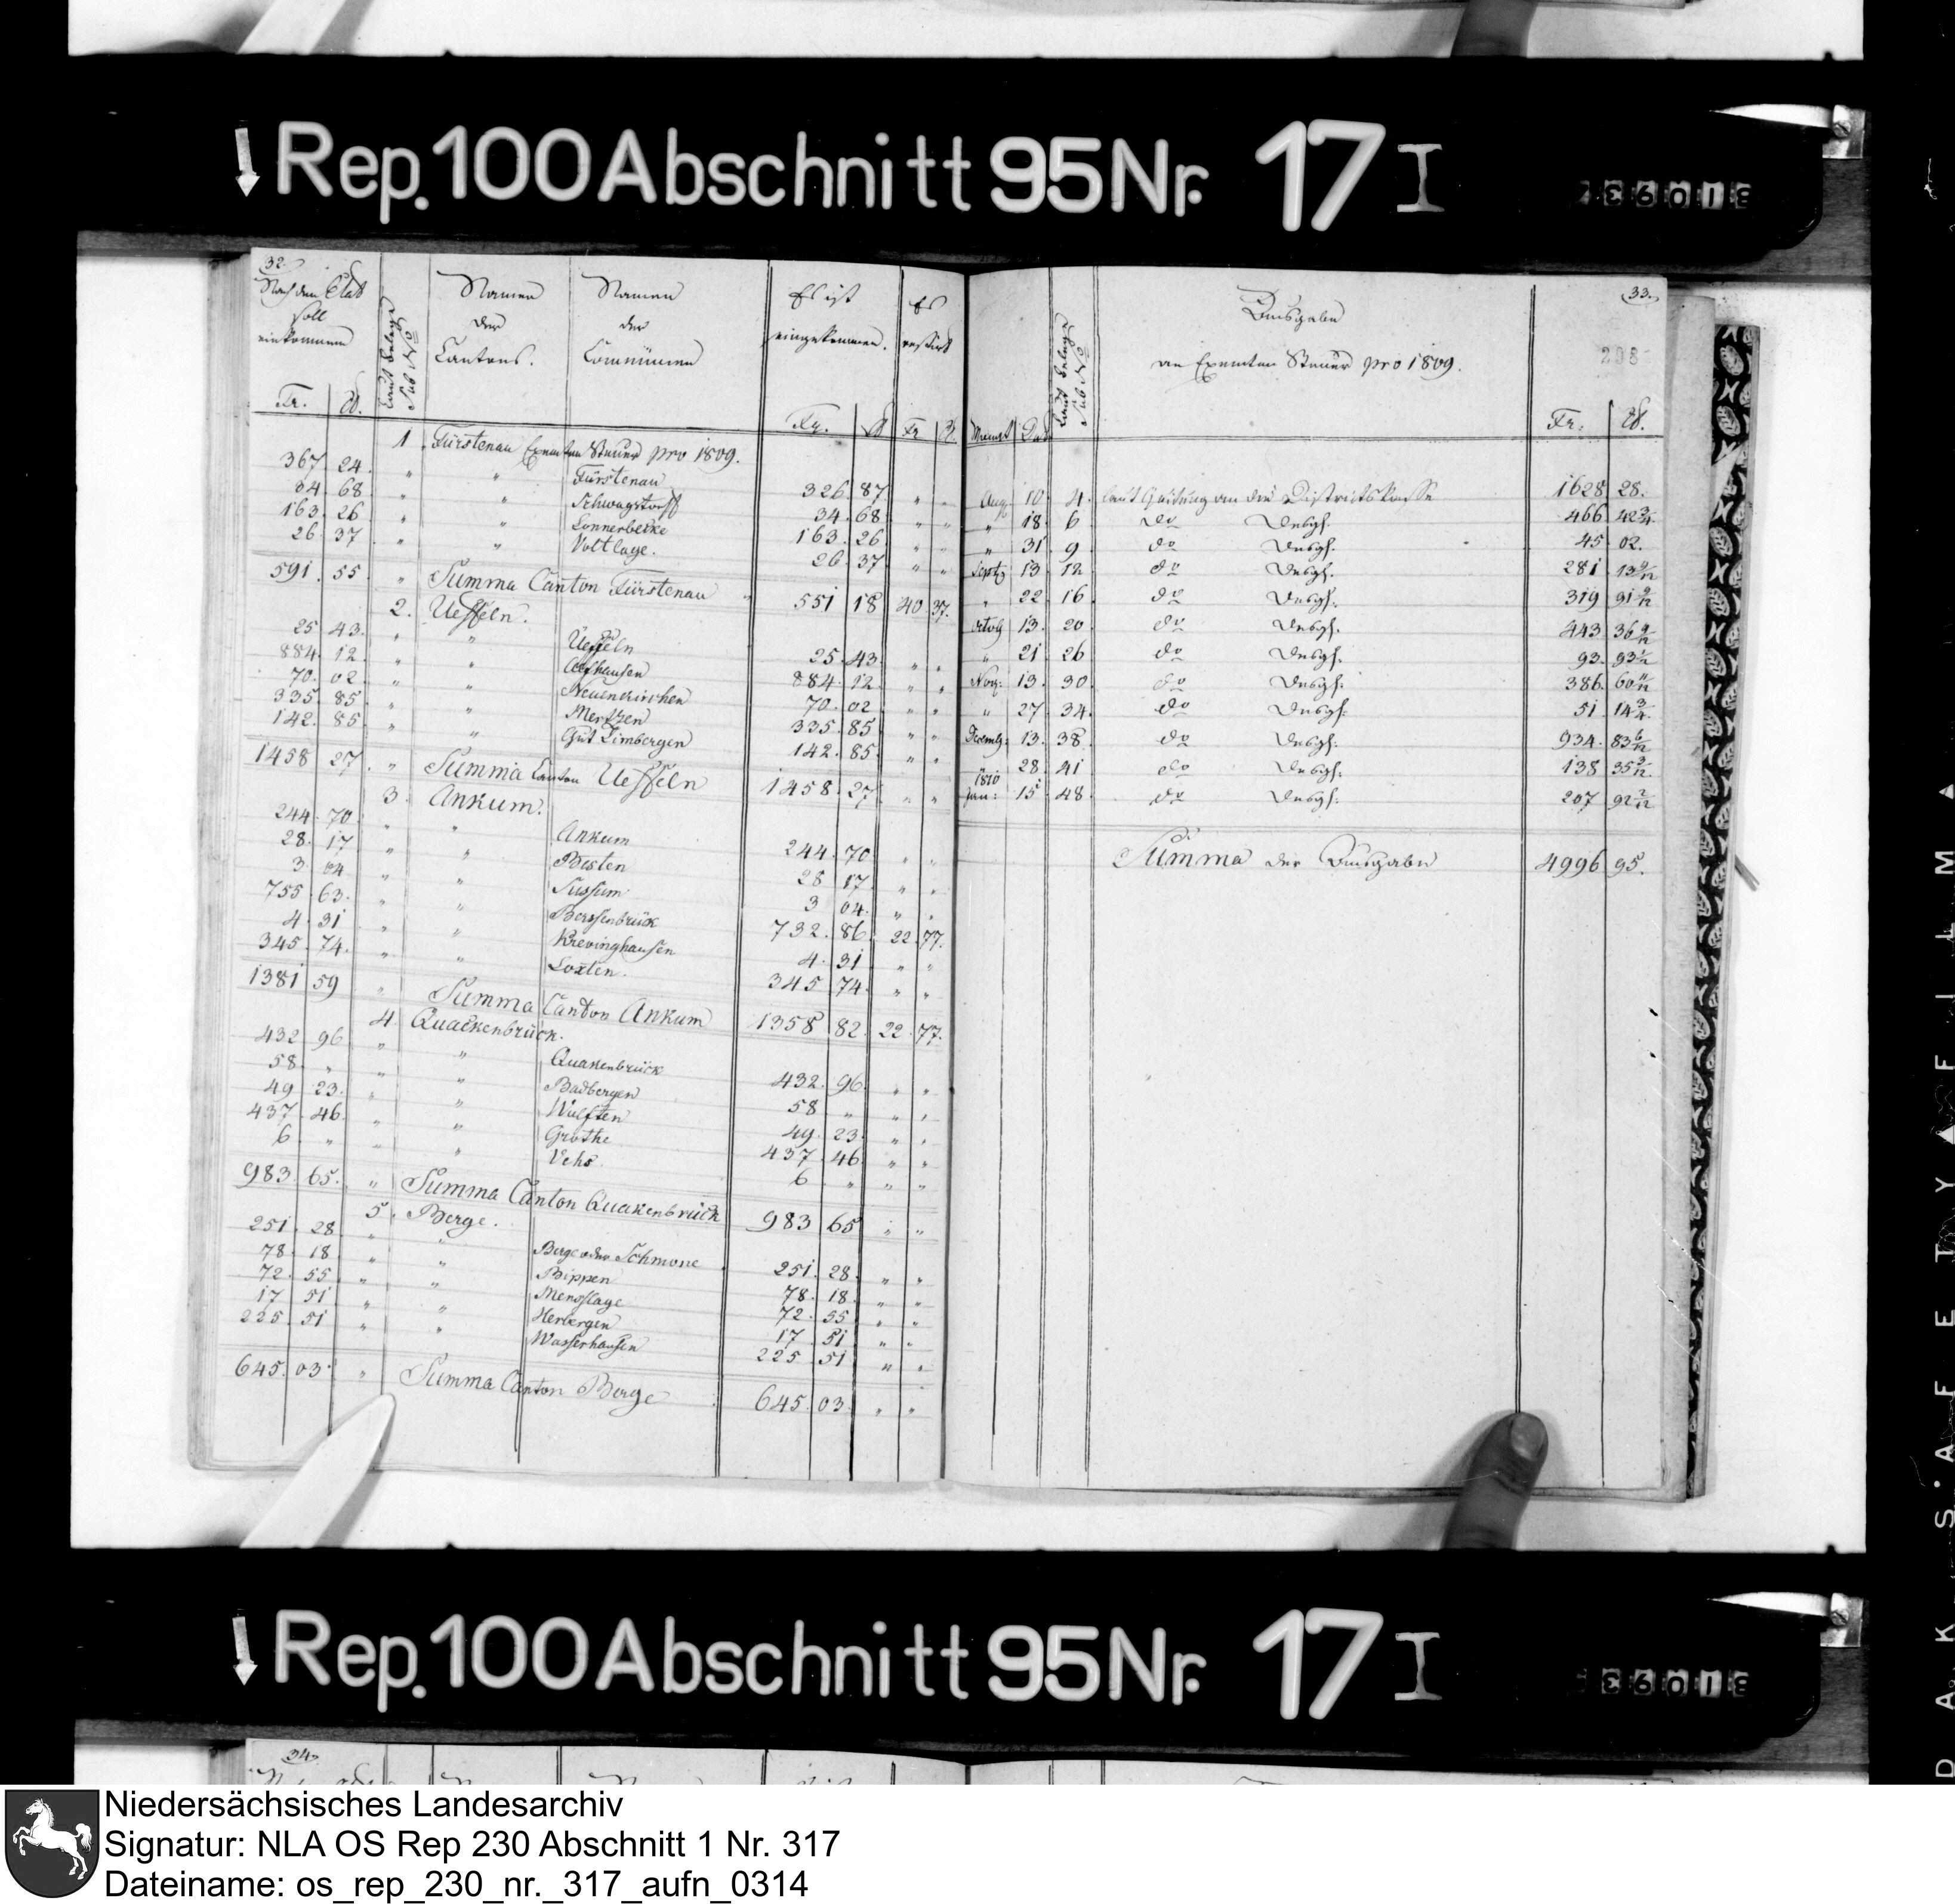 Rep. 100 Abschnitt 95 Nr. 17 I
32.
Nach dem Etat
soll
einkommen
Laut Belege
sub No
Namen
der
Cantons.
Namen
der
Communen
Es ist
eingekommen.
Es
restirt
Fr. Ct.
Fr. Ct. Fr Ct.
1 Fürstenau Exemten Steuer pro 1809.
367. 24. " " Fürstenau 326. 87 " "
34. 68 " " Schwagstorff 34. 68 " "
163. 26 " " Lonnerbecke 163. 26 " "
26. 37 " " Voltlage. 26 37 " "
591. 55 " Summa Canton Fürstenau 551 18 40 37.
2. Ueffeln.
25 43. " " Ueffeln 25. 43. " "
884. 12. " " Aefhausen 884. 12 " "
70. 02 " " Neuenkirchen 70. 02 " "
335. 85. " " Mertzen 335. 85. " "
142. 85 " " Gut Limbergen 142. 85. " "
1458 27. " Summa Canton Ueffeln 1458. 27 " "
3. Ankum.
244. 70. " " Ankum 244. 70 " "
28. 17 " " Besten 28 17 " "
3 04 " " Sussum 3 04. " "
755. 63. " " Berssenbrück 732. 86. 22 77.
4. 31 " " Krevinghausen 4. 31 " "
345. 74. " " Loxten. 345 74. " "
1381 59 " Summa Canton Ankum 1358 82. 22. 77.
4. Quackenbrück.
432 96 " " Quakenbrück 432. 96. " "
58. " " " Badbergen 58 " " "
49 23. " " Wulften 49. 23. " "
437. 46. " " Grothe 437. 46 " "
6. " " " Vehs. 6 " " "
983. 65. " Summa Canton Quakenbrück 983 65 " "
5. Berge.
251. 28 " " Berge oder Schmone 251. 28 " "
78. 18 " " Bippen 78. 18. " "
72. 55 " " Menslage 72. 55 " "
17 51 " " Herbergen 17 51 " "
225. 51 " " Wasserhausen 225 51 " "
645. 03. " Summa Canton Berge 645. 03. " "
33.
Laut Belege
sub No
Ausgabe
an Exemten Steuer pro 1809.
208
Monat Dat. Fr. Ct.
Aug. 10 4. laut Quitung an die Districtskasse 1628 28.
" 18. 6 do Desgl. 466 42 3/4.
" 31. 9. do Desgl. 45 02.
Septb 13 12 do Desgl. 281. 13 9/12
" 22 16 do Desgl. 319 91 9/12
Octob 13. 20 do Desgl. 443 36 9/12
" 21 26 do Desgl. 93. 93 1/12
Nov: 13. 30. do Desgl. 386. 60 11/12
" 27 34. do Desgl. 51 14 3/4.
Decemb: 13. 38. do Desgl. 934. 83 6/12
28. 41 do Desgl. 138 35 3/12.
1810
Jan: 15 48. do Desgl. 207 92 2/12
Summa der Ausgabe 4996 95.
Rep. 100 Abschnitt 95 Nr. 17 I
34
Niedersächsisches Landesarchiv
Signatur: NLA OS Rep 230 Abschnitt 1 Nr. 317
Dateiname: os_rep_230_nr._317_aufn_0314